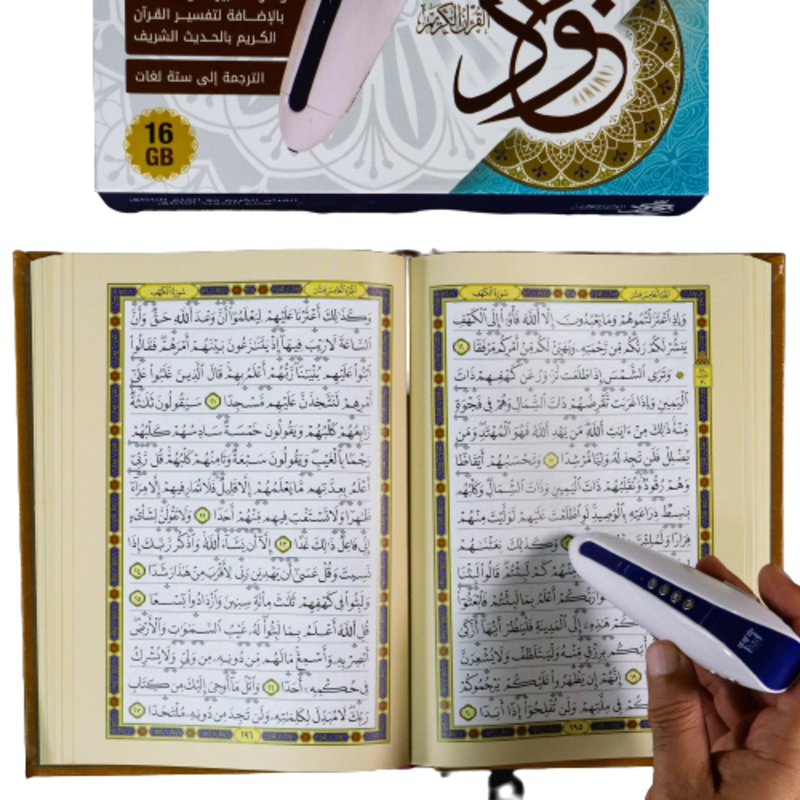 بالإضافة لتفسير القرآن
الكريم بالحديث الشريف
الترجمة إلى ستة لغات
16
GB
القرآن الكريم
الجزء الخامس عشر
سورة الكهف
وَإِذِ ٱعْتَزَلْتُمُوهُمْ وَمَا يَعْبُدُونَ إِلَّا ٱللَّهَ فَأْوُۥٓا۟ إِلَى ٱلْكَهْفِ
يَنشُرْ لَكُمْ رَبُّكُم مِّن رَّحْمَتِهِۦ وَيُهَيِّئْ لَكُم مِّنْ أَمْرِكُم مِّرْفَقًا ١٦
۞ وَتَرَى ٱلشَّمْسَ إِذَا طَلَعَت تَّزَٰوَرُ عَن كَهْفِهِمْ ذَاتَ
ٱلْيَمِينِ وَإِذَا غَرَبَت تَّقْرِضُهُمْ ذَاتَ ٱلشِّمَالِ وَهُمْ فِى فَجْوَةٍ
مِّنْهُ ذَٰلِكَ مِنْ ءَايَٰتِ ٱللَّهِ مَن يَهْدِ ٱللَّهُ فَهُوَ ٱلْمُهْتَدِ وَمَن
يُضْلِلْ فَلَن تَجِدَ لَهُۥ وَلِيًّا مُّرْشِدًا ١٧ وَتَحْسَبُهُمْ أَيْقَاظًا
وَهُمْ رُقُودٌ وَنُقَلِّبُهُمْ ذَاتَ ٱلْيَمِينِ وَذَاتَ ٱلشِّمَالِ وَكَلْبُهُم
بَٰسِطٌ ذِرَاعَيْهِ بِٱلْوَصِيدِ لَوِ ٱطَّلَعْتَ عَلَيْهِمْ لَوَلَّيْتَ مِنْهُمْ
فِرَارًا وَلَمُلِئْتَ وَكَذَٰلِكَ بَعَثْنَٰهُمْ
مِّنْهُمْ كَمْ لَبِثْتُمْ قَالُوا۟ لَبِثْنَا
رَبُّكُمْ أَعْلَمُ بِمَا لَبِثْتُمْ فَٱبْعَثُوٓا۟
هَٰذِهِۦٓ إِلَى ٱلْمَدِينَةِ فَلْيَنظُرْ أَيُّهَآ أَزْكَىٰ
بِرِزْقٍ مِّنْهُ وَلْيَتَلَطَّفْ وَلَا يُشْعِرَنَّ
١٩ إِنَّهُمْ إِن يَظْهَرُوا۟ عَلَيْكُمْ يَرْجُمُوكُمْ
فِى مِلَّتِهِمْ وَلَن تُفْلِحُوٓا۟ إِذًا أَبَدًا ٢٠
٢٩٥
الجزء الخامس عشر
سورة الكهف
وَكَذَٰلِكَ أَعْثَرْنَا عَلَيْهِمْ لِيَعْلَمُوٓا۟ أَنَّ وَعْدَ ٱللَّهِ حَقٌّ وَأَنَّ
ٱلسَّاعَةَ لَا رَيْبَ فِيهَآ إِذْ يَتَنَٰزَعُونَ بَيْنَهُمْ أَمْرَهُمْ فَقَالُوا۟
ٱبْنُوا۟ عَلَيْهِم بُنْيَٰنًا رَّبُّهُمْ أَعْلَمُ بِهِمْ قَالَ ٱلَّذِينَ غَلَبُوا۟ عَلَىٰٓ
أَمْرِهِمْ لَنَتَّخِذَنَّ عَلَيْهِم مَّسْجِدًا ٢١ سَيَقُولُونَ ثَلَٰثَةٌ
رَّابِعُهُمْ كَلْبُهُمْ وَيَقُولُونَ خَمْسَةٌ سَادِسُهُمْ كَلْبُهُمْ
رَجْمًۢا بِٱلْغَيْبِ وَيَقُولُونَ سَبْعَةٌ وَثَامِنُهُمْ كَلْبُهُمْ قُل رَّبِّىٓ
أَعْلَمُ بِعِدَّتِهِم مَّا يَعْلَمُهُمْ إِلَّا قَلِيلٌ فَلَا تُمَارِ فِيهِمْ إِلَّا مِرَآءً
ظَٰهِرًا وَلَا تَسْتَفْتِ فِيهِم مِّنْهُمْ أَحَدًا ٢٢ وَلَا تَقُولَنَّ لِشَا۟ىْءٍ
إِنِّى فَاعِلٌ ذَٰلِكَ غَدًا ٢٣ إِلَّآ أَن يَشَآءَ ٱللَّهُ وَٱذْكُر رَّبَّكَ إِذَا
نَسِيتَ وَقُلْ عَسَىٰٓ أَن يَهْدِيَنِ رَبِّى لِأَقْرَبَ مِنْ هَٰذَا رَشَدًا ٢٤
وَلَبِثُوا۟ فِى كَهْفِهِمْ ثَلَٰثَ مِا۟ئَةٍ سِنِينَ وَٱزْدَادُوا۟ تِسْعًا ٢٥
قُلِ ٱللَّهُ أَعْلَمُ بِمَا لَبِثُوا۟ لَهُۥ غَيْبُ ٱلسَّمَٰوَٰتِ وَٱلْأَرْضِ
أَبْصِرْ بِهِۦ وَأَسْمِعْ مَا لَهُم مِّن دُونِهِۦ مِن وَلِىٍّ وَلَا يُشْرِكُ
فِى حُكْمِهِۦٓ أَحَدًا ٢٦ وَٱتْلُ مَآ أُوحِىَ إِلَيْكَ مِن كِتَابِ
رَبِّكَ لَا مُبَدِّلَ لِكَلِمَٰتِهِۦ وَلَن تَجِدَ مِن دُونِهِۦ مُلْتَحَدًا ٢٧
٢٩٦